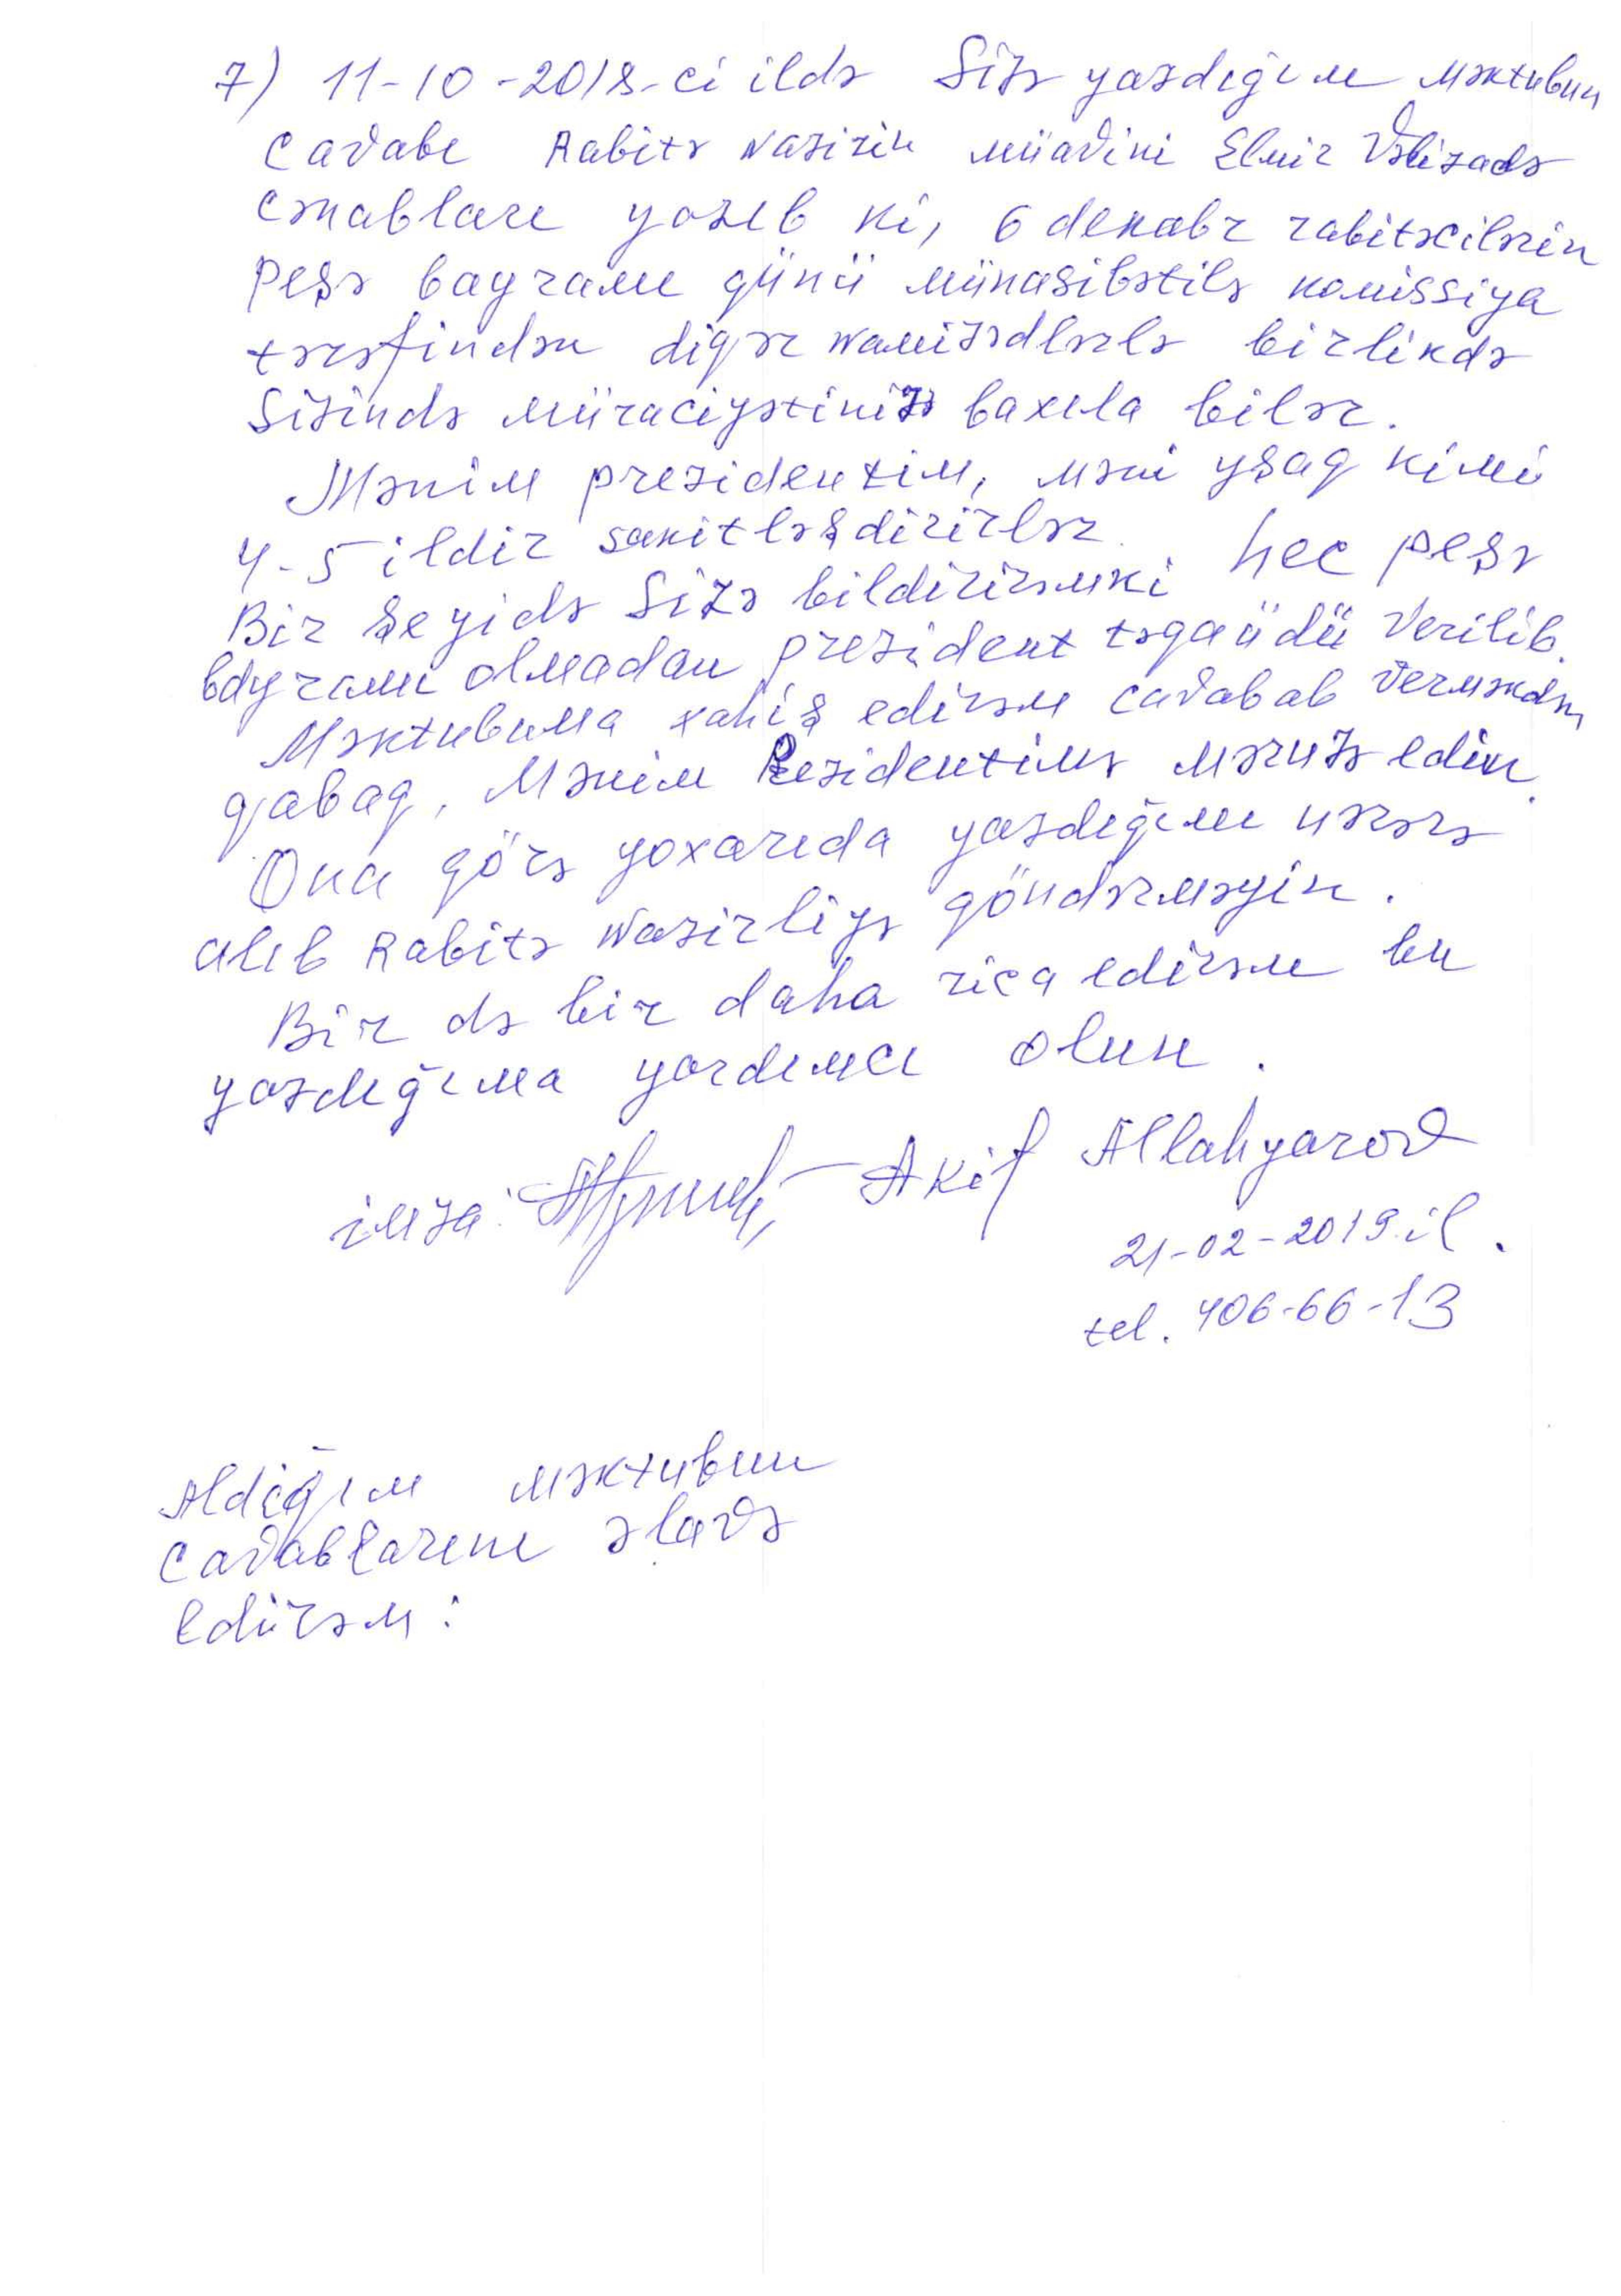 7) 11-10-2018-ci ildə Sizə yazdığım məktubun
cavabı Rabitə naziriн müavini Elmir Vəlizadə
cənabları yazıb ki, 6 dekabr rabitəcilərin
peşə bayramı günü münasibətilə komissiya
tərəfindən digər namizədlərlə birlikdə
Sizində müraciyətinizə baxıla bilər.
Mənim prezidentim, məni uşaq kimi
4-5 ildir sakitləşdirirlər.
Bir şeyidə Sizə bildirirəmki hec peşə
bayramı olmadan prezident təqaüdü verilib.
Məktubuma xahiş edirəm cavabab verməkdən
qabaq, Mənim Prezidentimə məruzə edin.
Ona görə yoxarıda yazdığımı nəzərə
alıb Rabitə nazirliyə göndərməyin.
Bir də bir daha rica edirəm bu
yazdığıma yardımcı olun.
imza: Akif Allahyarov
21-02-2019 il.
tel. 406-66-13
Aldığım məktubun
cavablarını əlavə
edirəm: